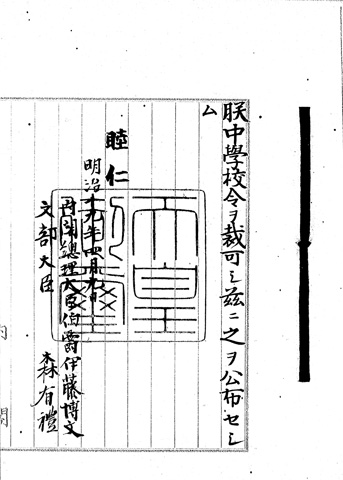 朕中學校令ヲ裁可シ茲ニ之ヲ公布セシ
ム
睦仁
天皇
御璽
明治十九年四月九日
內閣總理大臣伯爵伊藤博文
文部大臣 森有禮
內閣